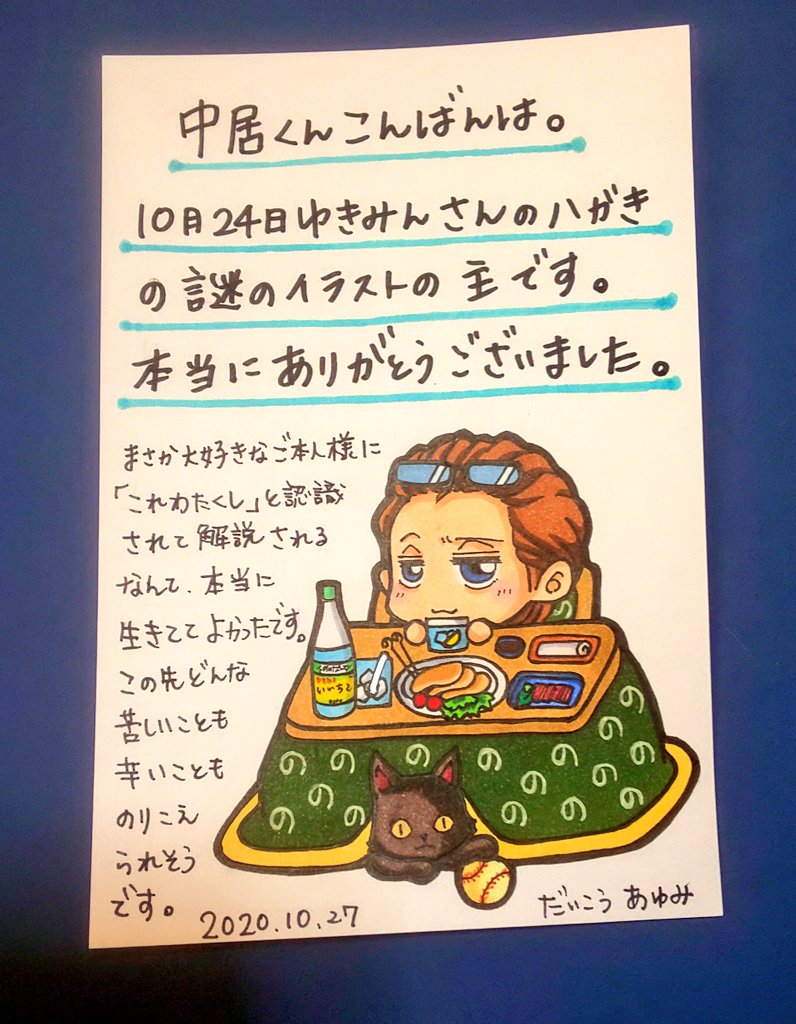 中居くんこんばんは。
10月24日ゆきみんさんのハガキ
の謎のイラストの主です。
本当にありがとうございました。
まさか大好きなご本人様に
「これわたくし」と認識
されて解説される
なんて、本当に
生きててよかったです。
この先どんな
苦しいことも
辛いことも
のりこえ
られそう
です。
2020.10.27
だいこう あゆみ
いいちこ
の の の の の の の の の の の の の の